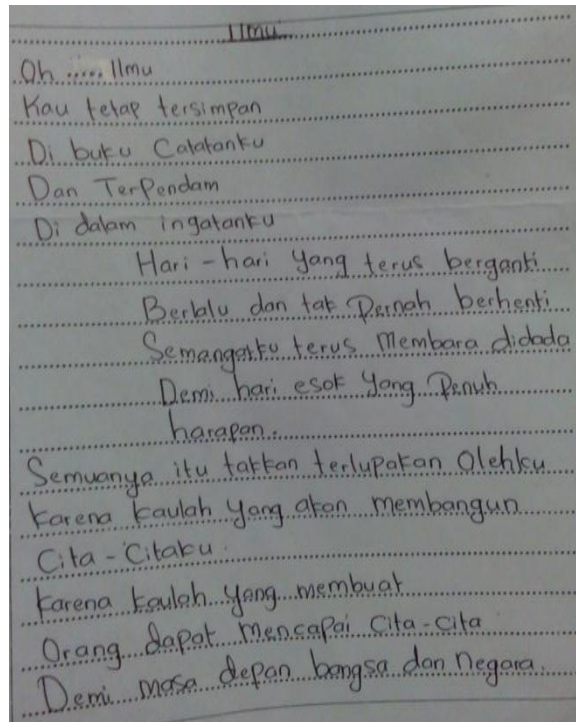 Ilmu
Oh ..... Ilmu
Kau tetap tersimpan
Di buku Catatanku
Dan TerPendam
Di dalam ingatanku
Hari - hari yang terus berganti
Berlalu dan tak Pernah berhenti
Semangatku terus Membara didada
Demi hari esok yang Penuh
harapan.
Semuanya itu takkan terlupakan Olehku
Karena kaulah yang akan membangun
Cita - Citaku.
Karena kaulah yang membuat
Orang dapat Mencapai Cita-cita
Demi masa depan bangsa dan Negara.